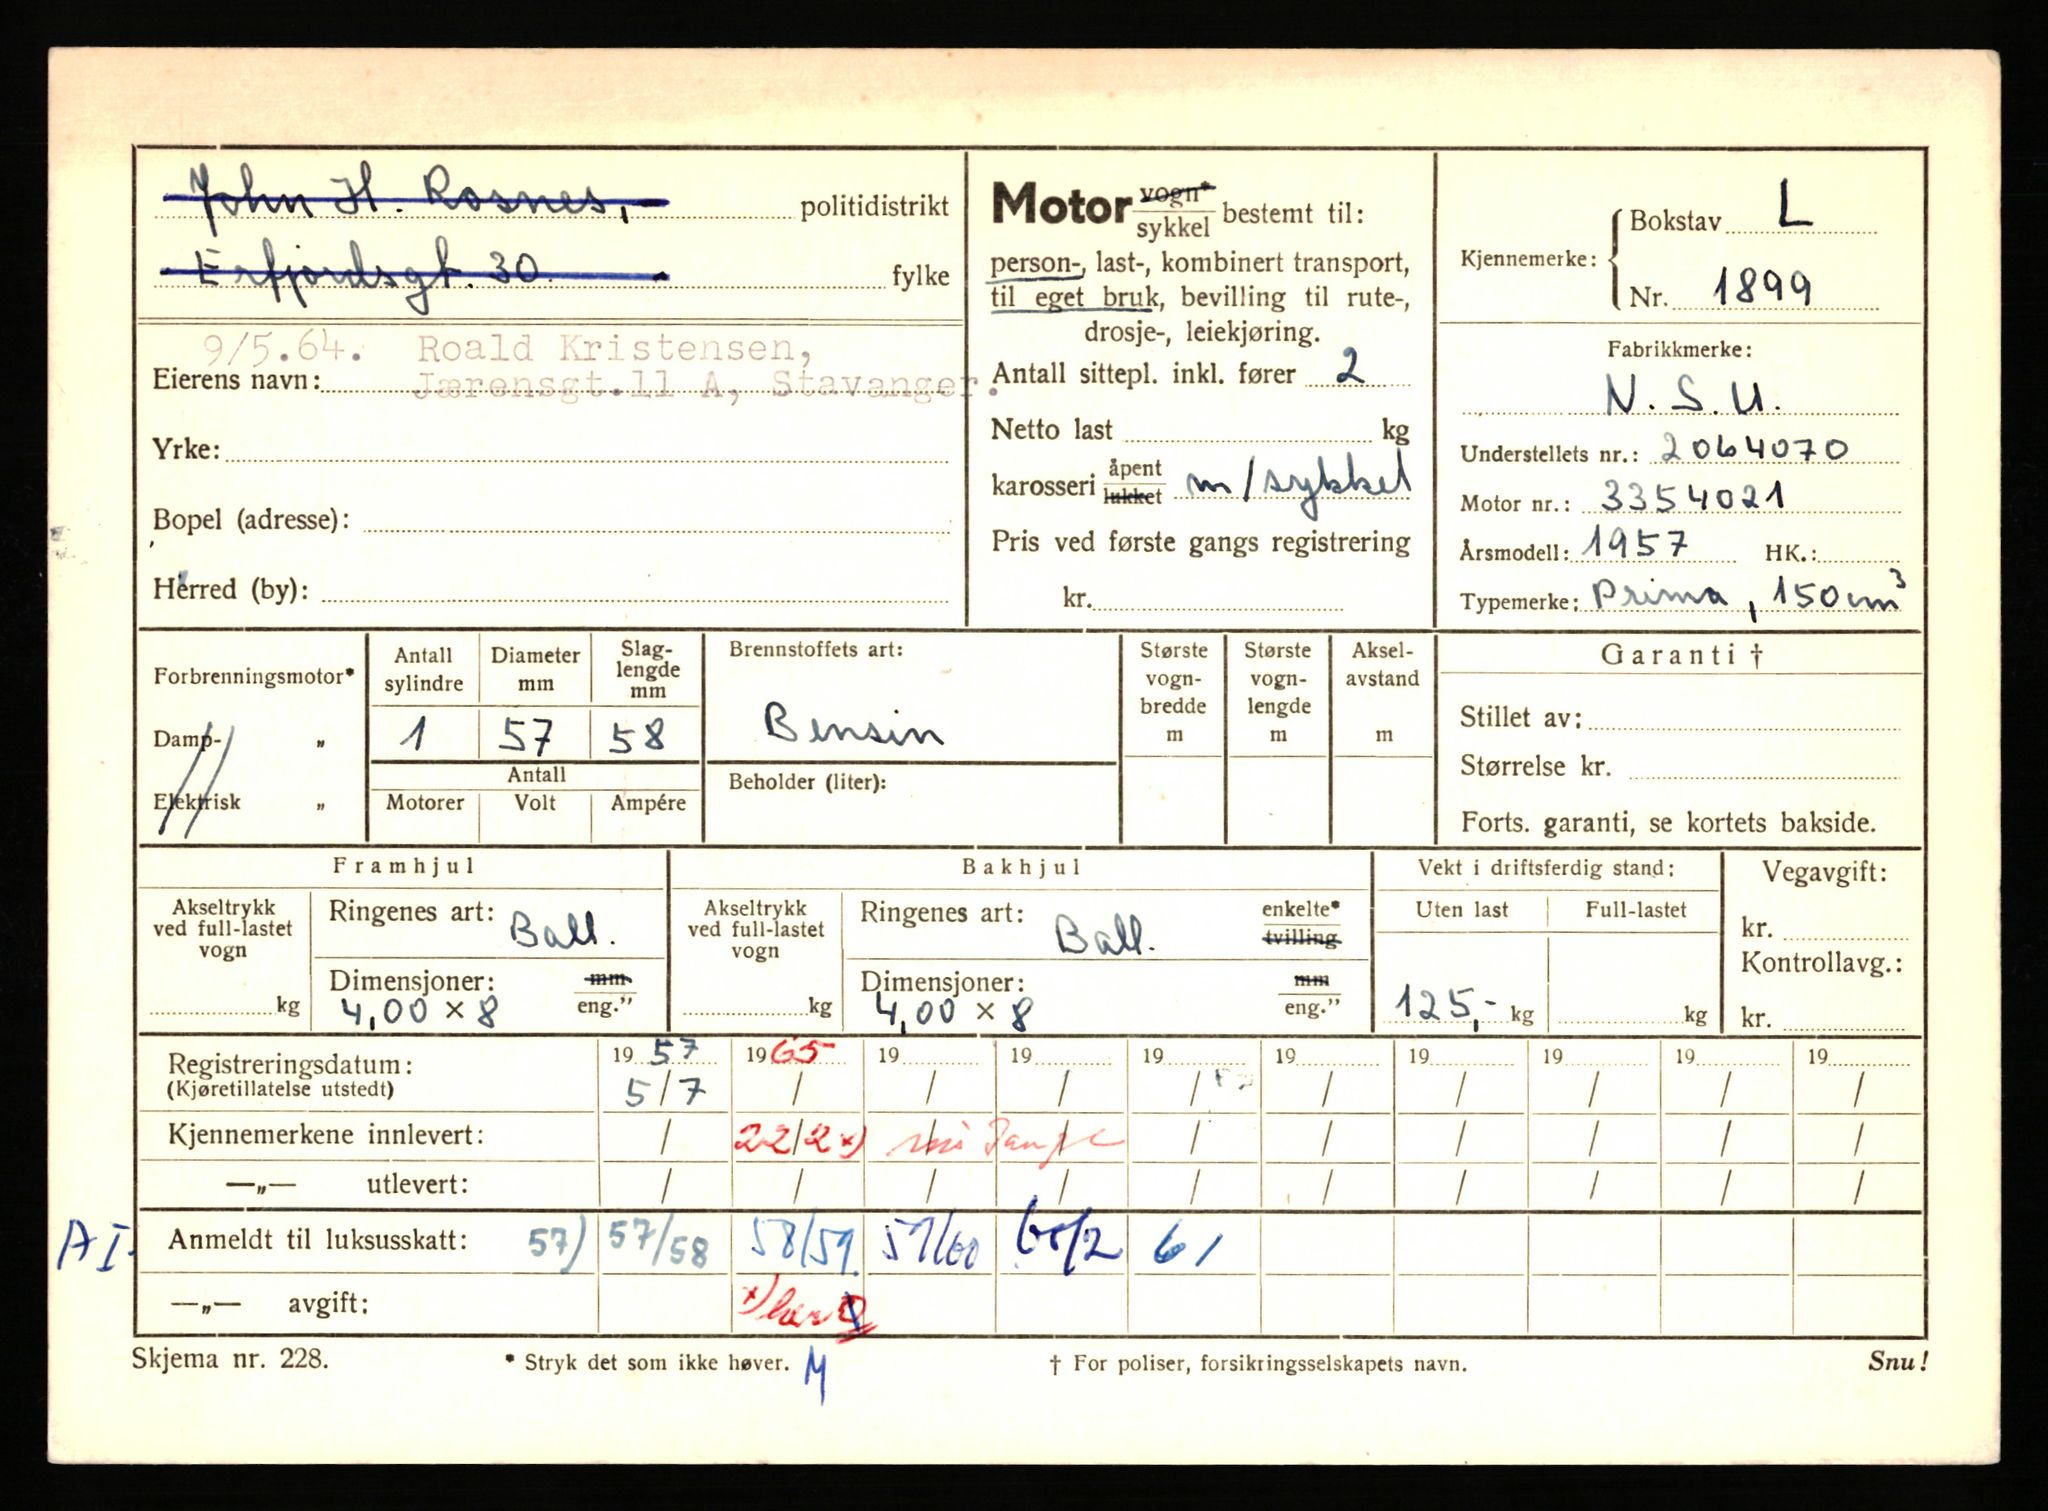 John H. Rosnes, politidistrikt
Erfjordsgt. 30. fylke
9/5.64. Roald Kristensen,
Eierens navn: Jærensgt.11 A, Stavanger.
Yrke:
Bopel (adresse):
Herred (by):
Motor vogn* sykkel bestemt til:
person-, last-, kombinert transport,
til eget bruk, bevilling til rute-,
drosje-, leiekjøring.
Antall sittepl. inkl. fører 2
Netto last kg
karosseri åpent lukket m/sykkel
Pris ved første gangs registrering
kr.
Kjennemerke: Bokstav L
Nr. 1899
Fabrikkmerke:
N.S.U.
Understellets nr.: 2064070
Motor nr.: 3354021
Årsmodell: 1957 HK.:
Typemerke: Prima, 150 cm³
Forbrenningsmotor*
Damp- „
Elektrisk „
Antall sylindre
1
Diameter mm
57
Slag-lengde mm
58
Antall
Motorer Volt Ampére
Brennstoffets art:
Bensin
Beholder (liter):
Største vogn-bredde m
Største vogn-lengde m
Aksel-avstand m
Garanti †
Stillet av:
Størrelse kr.
Forts. garanti, se kortets bakside.
Framhjul
Akseltrykk ved full-lastet vogn
kg
Ringenes art: Ball.
Dimensjoner: mm eng."
4,00 × 8
Bakhjul
Akseltrykk ved full-lastet vogn
kg
Ringenes art: Ball. enkelte* tvilling
Dimensjoner: mm eng."
4,00 × 8
Vekt i driftsferdig stand:
Uten last Full-lastet
125,- kg kg
Vegavgift:
kr.
Kontrollavg.:
kr.
Registreringsdatum: 1957 1965 19 19 19 19 19 19 19 19
(Kjøretillatelse utstedt) 5/7 / / / / / / / / /
Kjennemerkene innlevert: / 22/2 x) / / / / / / / /
—„— utlevert: / / / / / / / / / /
A I. Anmeldt til luksusskatt: 57) 57/58 58/59 59/60 60/2 61
—„— avgift: x)
Skjema nr. 228. * Stryk det som ikke høver. M † For poliser, forsikringsselskapets navn. Snu!